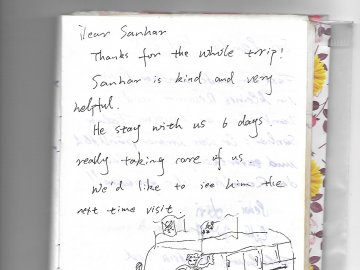 Dear Sanhar
Thanks for the whole trip!
Sanhar is kind and very
helpful.
He stay with us 6 days.
really taking care of us
We'd like to see him the
next time visit.